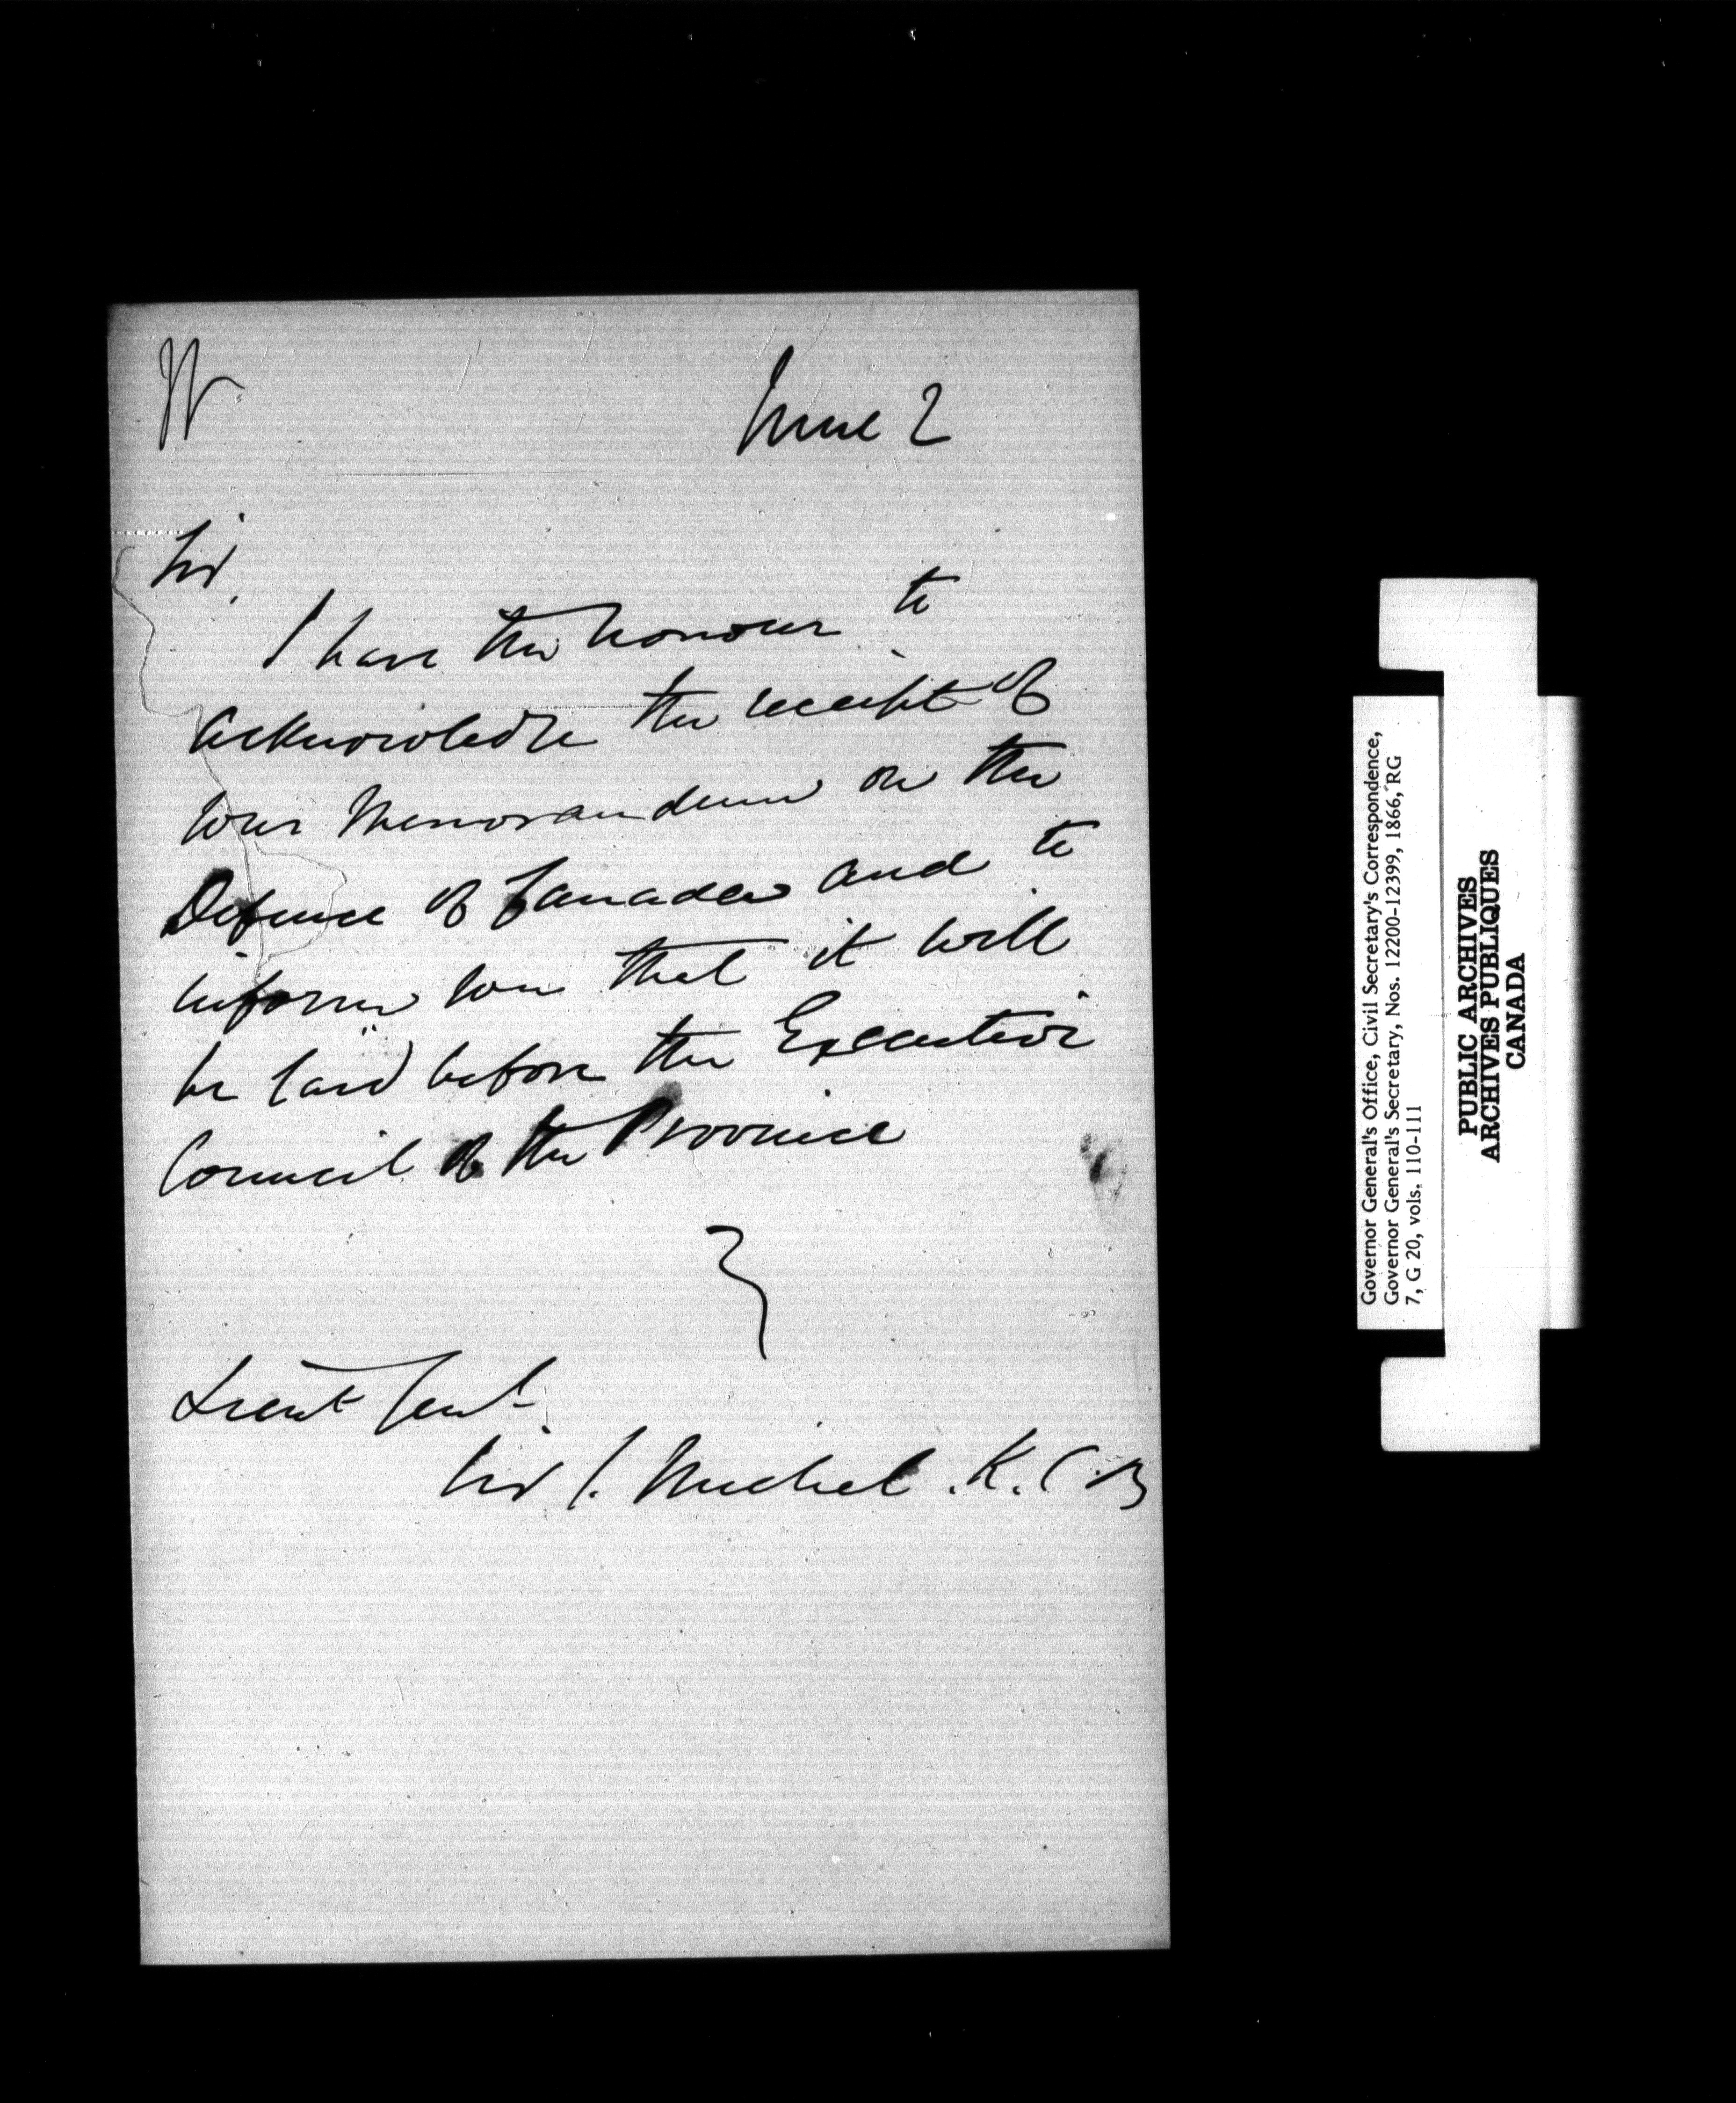 W
June 2
Sir,
I have the honour to
acknowledge the receipt of
your Memorandum on the
Defence of Canada and to
inform you that it will
be laid before the Executive
Council of the Province
Lieut Genl
Sir J. Michel. K.C.B
Governor General's Office, Civil Secretary's Correspondence,
Governor General's Secretary, Nos. 12200-12399, 1866, RG
7, G 20, vols. 110-111
PUBLIC ARCHIVES
ARCHIVES PUBLIQUES
CANADA